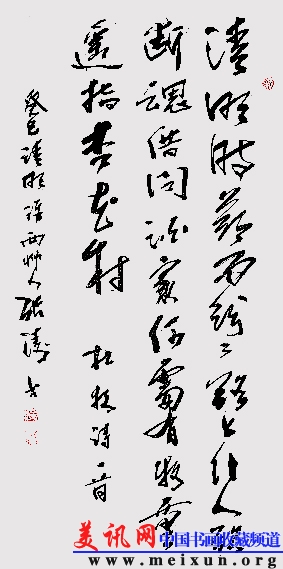 清明时节雨纷纷路上行人欲
断魂借问酒家何處有牧童
遥指杏花村 杜牧诗一首
癸巳清明
美讯网 中国书画收藏频道
www.meixun.org